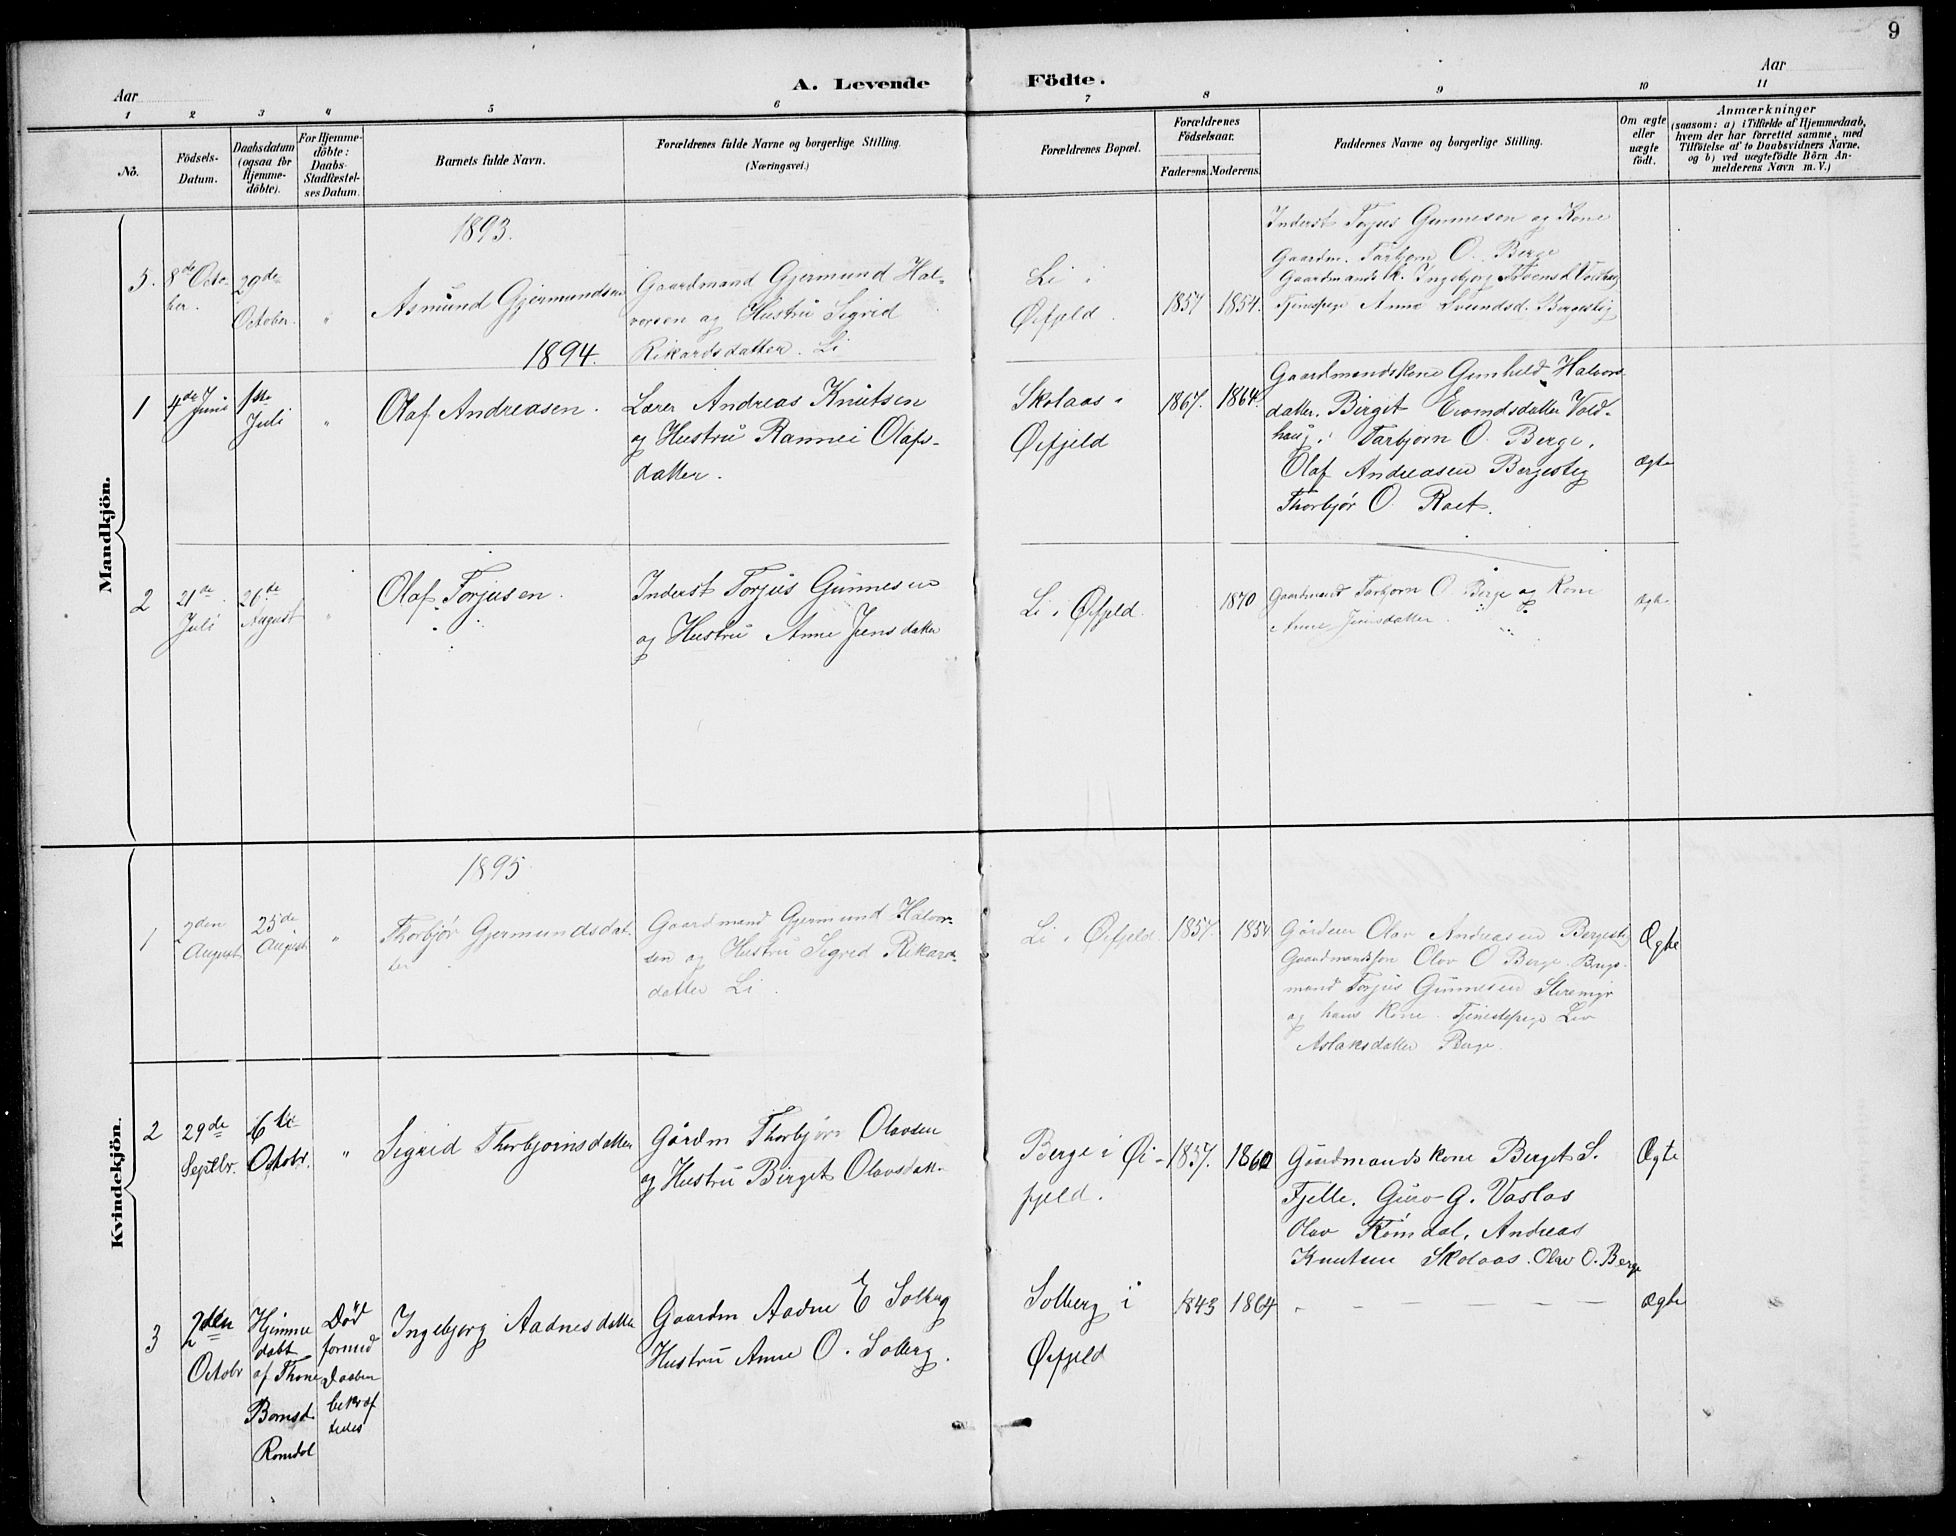 9
Aar
A. Levende Födte.
Aar
1 2 3 4 5 6 7 8 9 10 11
No.
Födsels-
Datum.
Daabsdatum
(ogsaa for
Hjemme-
döbte).
For Hjemme-
döbte:
Daabs-
Stadfæstel-
ses Datum.
Barnets fulde Navn.
Forældrenes fulde Navne og borgerlige Stilling.
(Næringsvei.)
Forældrenes Bopæl.
Forældrenes
Födselsaar.
Faderens. Moderens.
Faddernes Navne og borgerlige Stilling.
Om ægte
eller
uægte
födt.
Anmærkninger
(saasom: a) i Tilfælde af Hjemmedaab,
hvem der har forrettet samme, med
Tilföielse af to Daabsvidners Navne,
og b) ved uægtefödte Börn An-
melderens Navn m. V.)
Mandkjön.
1893.
5. 8de Octo-
ber.
29de
October.
"
Asmund Gjermundsen
Gaardmand Gjermund Hal-
vorsen og Hustru Sigrid
Rikardsdatter. Li
Li i
Øifjeld.
1857 1854.
Inderst Torjus Gunnesen og Kone
Gaardm. Tarbjørn O. Berge
Gaardmandsk. Ingebjørg
Tjenstpige Anne Svendsd. Bergestig
1894.
1 4de Juni
1ste
Juli
"
Olaf Andreasen.
Lærer Andreas Knutsen
og Hustru Rannei Olafs-
datter.
Skolaas i
Øifjeld
1867. 1864.
Gaardmandskone Gunhild Halvors-
datter. Birget Evendsdatter Vold-
haug. Tarbjørn O. Berge.
Olaf Andreasen Bergestig
Thorbjør O. Raet.
Ægte
2 21de
Juli
26de
August
"
Olaf Torjusen.
Inderst Torjus Gunnesen
og Hustru Anne Jensdatter
Li i Øifjeld.
1870
Gaardmand Tarbjørn O. Berge og Kone
Anne Jensdatter.
Ægte
Kvindekjön.
1895
1 2den
August
25de
August
"
Thorbjør Gjermundsdat-
ter
Gaardmand Gjermund Halvor-
sen og Hustru Sigrid Rikards-
datter Li.
Li i Øifjeld. 1857. 1854
Gårdeier Olav Andreasen Bergestig
Gaardmandssøn Olav O Berge. Brugs-
mand Torjus Gunnesen Steremyr
og hans Kone. Tjenestepige Liv
Aslaksdatter Berge.
Ægte
2 29de
Septbr.
6te
Octobr.
"
Sigrid Thorbjørnsdatter
Gårdm Thorbjørn Olavsen
og Hustru Birget Olavsdatt.
Berge i Øi-
fjeld.
1857. 1860
Gårdmandskone Berget S.
Fjelle. Guro G. Vaslas
Olav Rømdal, Andreas
Knutsen Skolaas. Olav O. Berge
Ægte
3 2den
Octobr
Hjemme
døbt
af Thone
Bomsd.
Romdal
Død
forind
Daaben
bekræf
tedes
Ingebjørg Aadnesdatter
Gaardm Aadne E Solberg
Hustru Anne O. Solberg.
Solberg i
Øifjeld
1843 1864
- - - - - -
Ægte